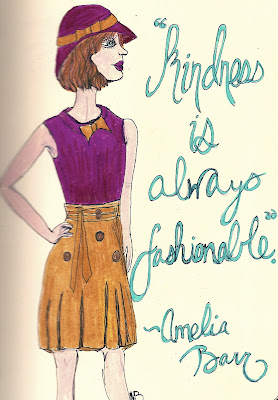 "Kindness
is
always
fashionable."
~Amelia
Barr